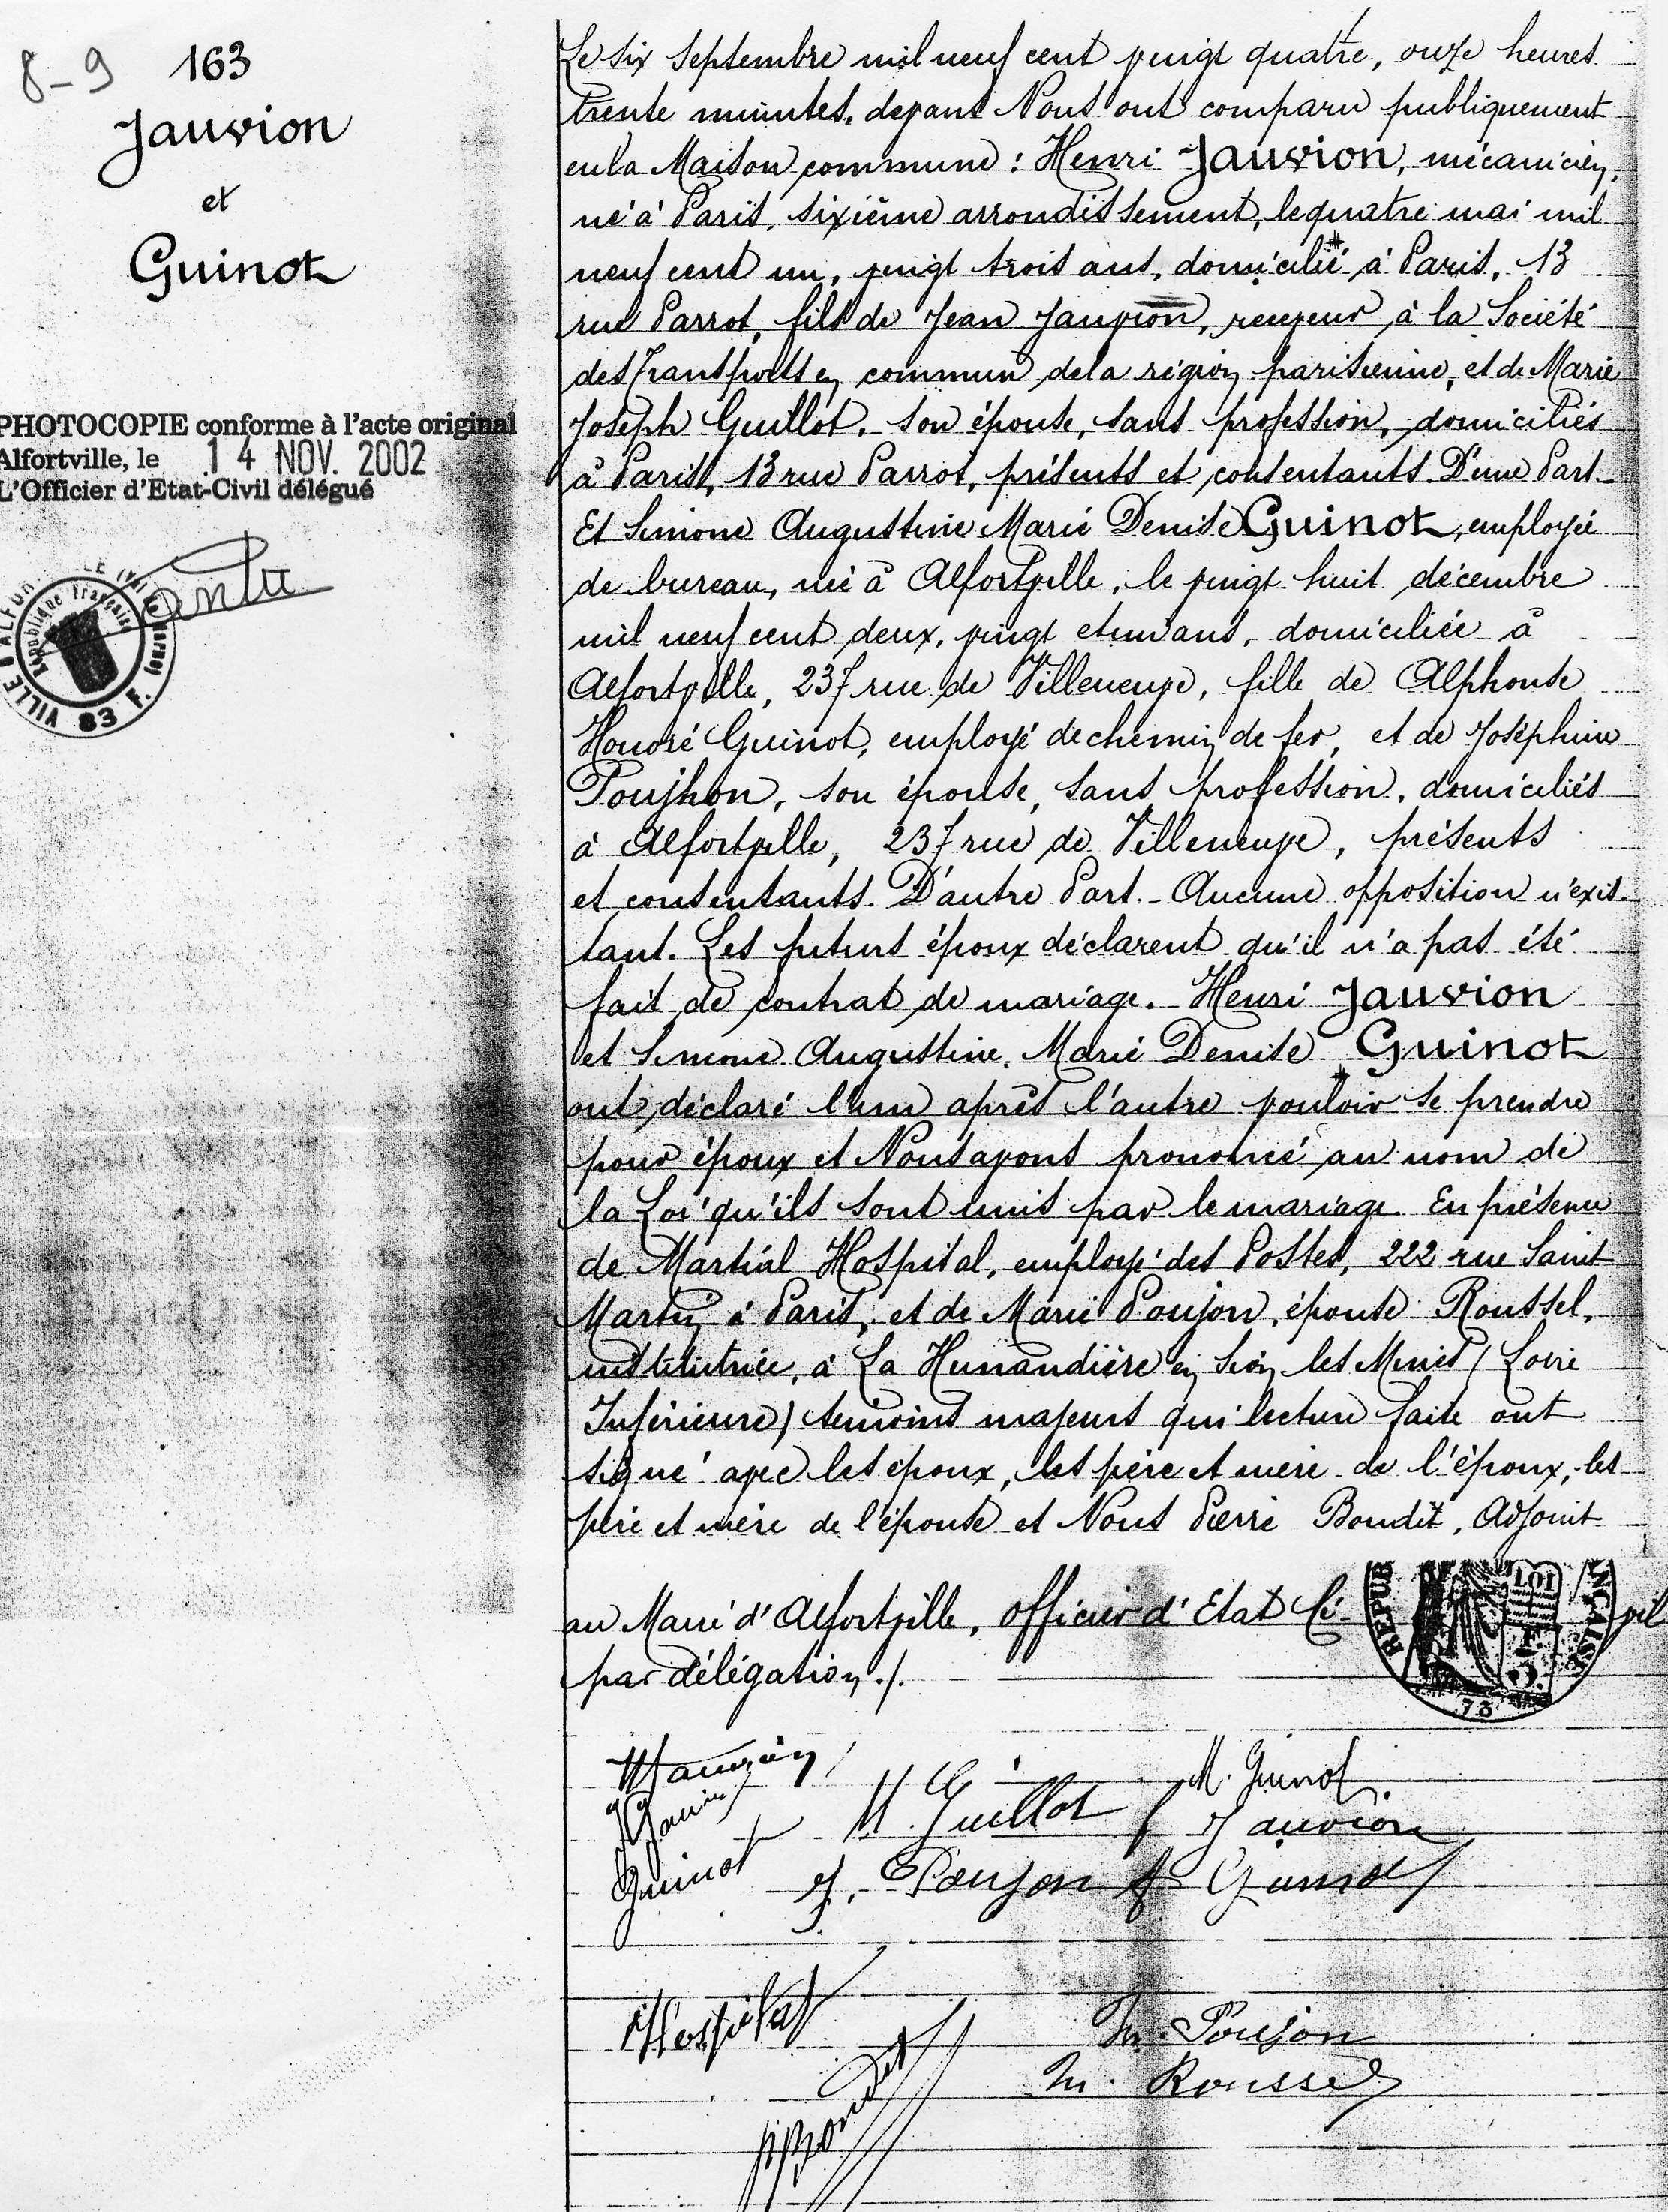 8-9
163
Jauvion
et
Guinot
PHOTOCOPIE conforme à l'acte original
Alfortville, le 14 NOV. 2002
L'Officier d'Etat-Civil délégué
République Française
83
Le six septembre mil neuf cent vingt quatre, onze heures
trente minutes, devant Nous ont comparu publiquement
en la Maison commune : Henri Jauvion, mécanicien,
né à Paris, sixième arrondissement, le quatre mai mil
neuf cent un, vingt trois ans, domicilié à Paris, 13
rue Parrot, fils de Jean Jauvion, receveur à la Société
des Transports en commun de la région parisienne, et de Marie
Joseph Guillot, son épouse, sans profession, domiciliés
à Paris, 13 rue Parrot, présents et consentants. D'une Part.
Et Simone Augustine Marie Denise Guinot, employée
de bureau, née à Alfortville, le vingt huit décembre
mil neuf cent deux, vingt et un ans, domiciliée à
Alfortville, 237 rue de Villeneuve, fille de Alphonse
Honoré Guinot, employé de chemin de fer, et de Joséphine
Poujhon, son épouse, sans profession, domiciliés
à Alfortville, 237 rue de Villeneuve, présents
et consentants. D'autre Part. - Aucune opposition n'exis-
tant. Les futurs époux déclarent qu'il n'a pas été
fait de contrat de mariage. Henri Jauvion
et Simone Augustine Marie Denise Guinot
ont déclaré l'un après l'autre vouloir se prendre
pour époux et Nous avons prononcé au nom de
la Loi qu'ils sont unis par le mariage. En présence
de Martial Hospital, employé des Postes, 222 rue Saint
Martin à Paris, et de Marie Poujon, épouse Roussel,
institutrice, à La Hunandière en Sion les Mines (Loire
Inférieure) témoins majeurs qui lecture faite ont
signé avec les époux, les père et mère de l'époux, les
père et mère de l'épouse et Nous Pierre Boudit, Adjoint
au Maire d'Alfortville, officier d'Etat Ci-vil
par délégation ./.
LOI
73
Jauvion
M. Guinot
M. Guillot f Jauvion
Guinot
J. Poujon f Guinot
Hospital
M. Poujon
M. Roussel